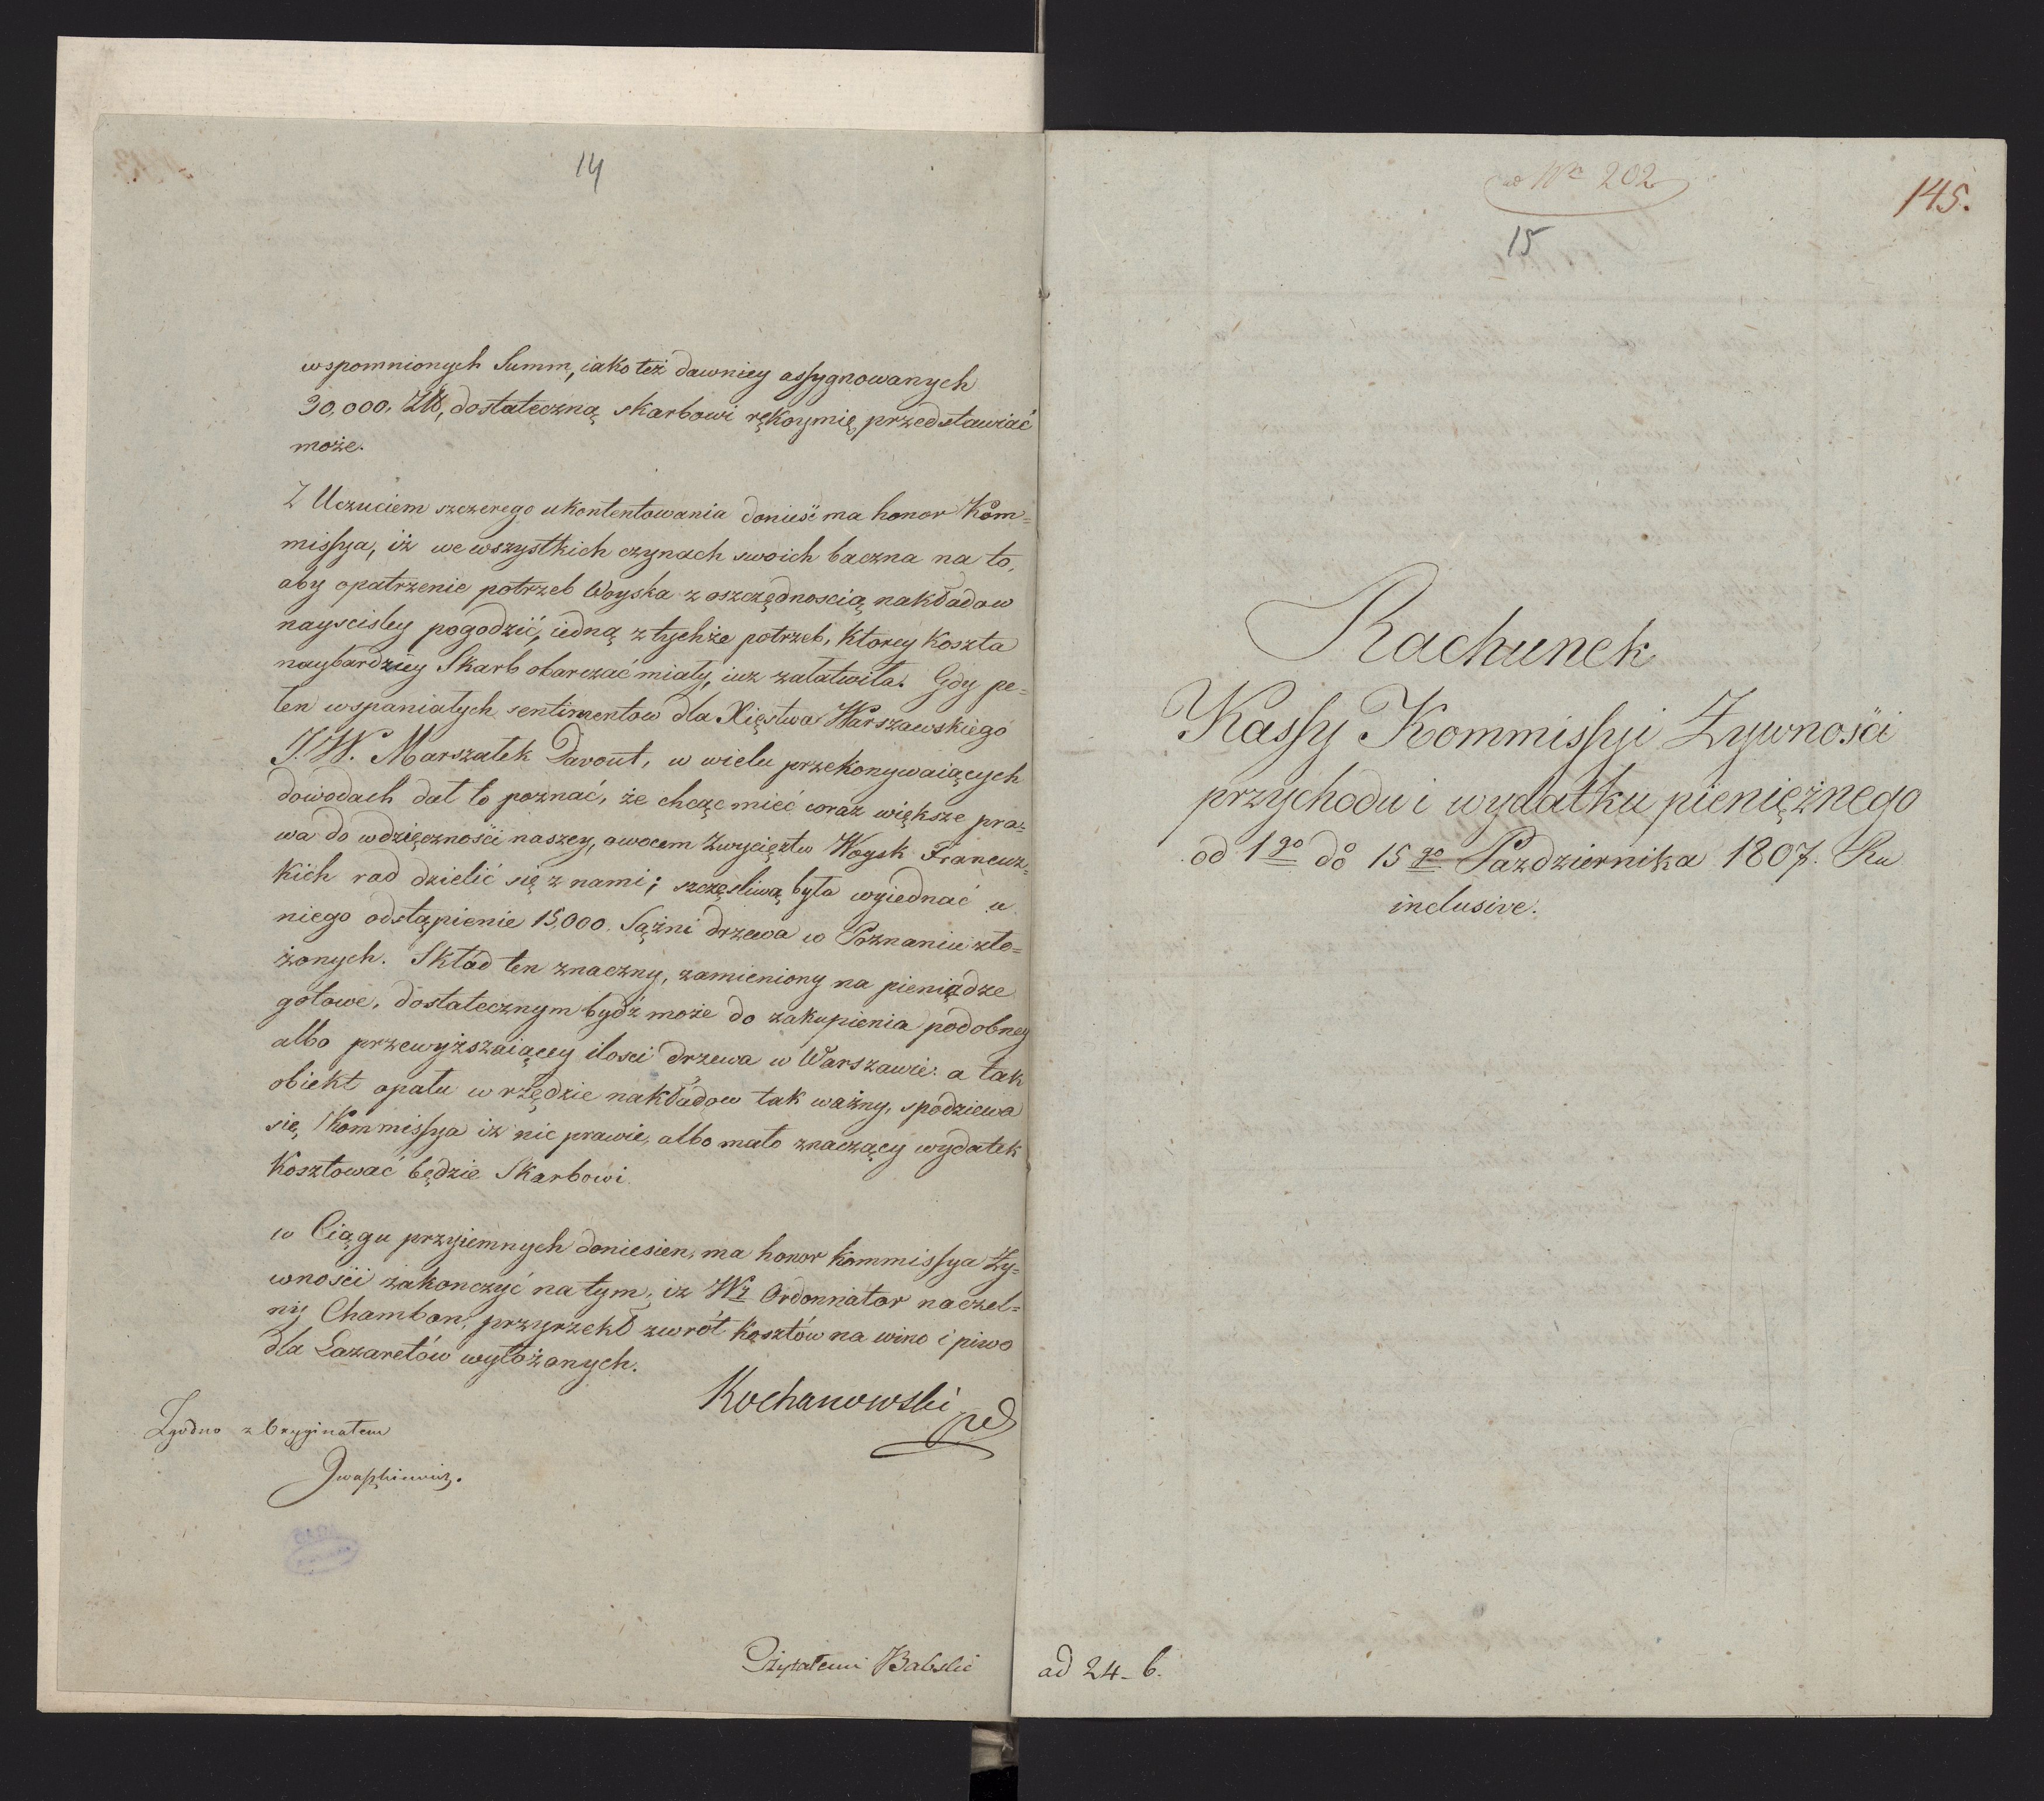 14
wspomnionych Summ, iako też dawniey assygnowanych
30,000. Zł, dostateczną skarbowi rękoymię przedstawiać
może.
Z Uczuciem szczerego ukontentowania donieść ma honor Kom=
missya, iż we wszystkich czynach swoich baczna na to,
aby opatrzenie potrzeb Woyska z oszczędnoscią nakładow
nayscisley pogodzić, iedną z tychże potrzeb, ktorey koszta
naybardziey Skarb obarczać miały, iuz załatwiła. Gdy pe=
łen wspaniałych sentimentow dla Xięstwa Warszawskiego
J. W. Marszałek Davout, w wielu przekonywaiących
dowodach dał to poznać, że chcąc mieć coraz większe pra=
wa do wdzięczności naszey, owocem Zwycięztw Woysk Francuz=
kich rad dzielić się z nami; szczęsliwą była wyiednać u
niego odstąpienie 15,000. Sążni drzewa w Poznaniu zło=
żonych. Skład ten znaczny, zamieniony na pieniądze
gotowe, dostatecznym bydź może do zakupienia podobney
albo przewyższaiącey ilosci drzewa w Warszawie: a tak
obiekt opału w rzędzie nakładow tak ważny, spodziewa
się Kommissya iz nic prawie, albo mało znaczący wydatek
Kosztować będzie Skarbowi.
w Ciągu przyiemnych doniesien, ma honor Kommissya Ży=
wności zakonczyć na tym, iz Wy Ordonnator naczel=
ny Chambon, przyrzekł zwrót kosztów na wino i piwo
dla Lazaretów wyłożonych.
Kochanowski
Zgodno z Oryginałem
Iwaszkiewicz.
Czytałem Babski
ad Nr 202
145.
15
Rachunek
Kassy Kommissyi Żywności
przychodu i wydatku pieniężnego
od 1go do 15go Pazdziernika 1807. Ru
inclusive.
ad 24-b.